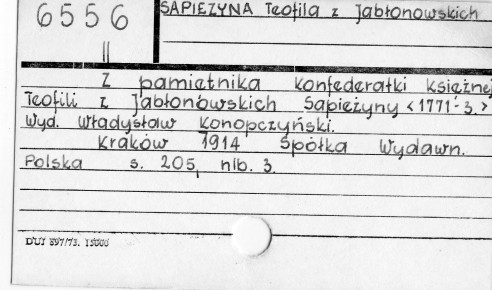 6556
II
SAPIEŻYNA Teofila z Jabłonowskich
Z pamiętnika konfederatki księżnej
Teofili z Jabłonowskich Sapieżyny <1771-3.>
Wyd. Władysław Konopczyński.
Kraków 1914 Spółka Wydawn.
Polska s. 205, nlb. 3.
DUJ 897/73. 15000